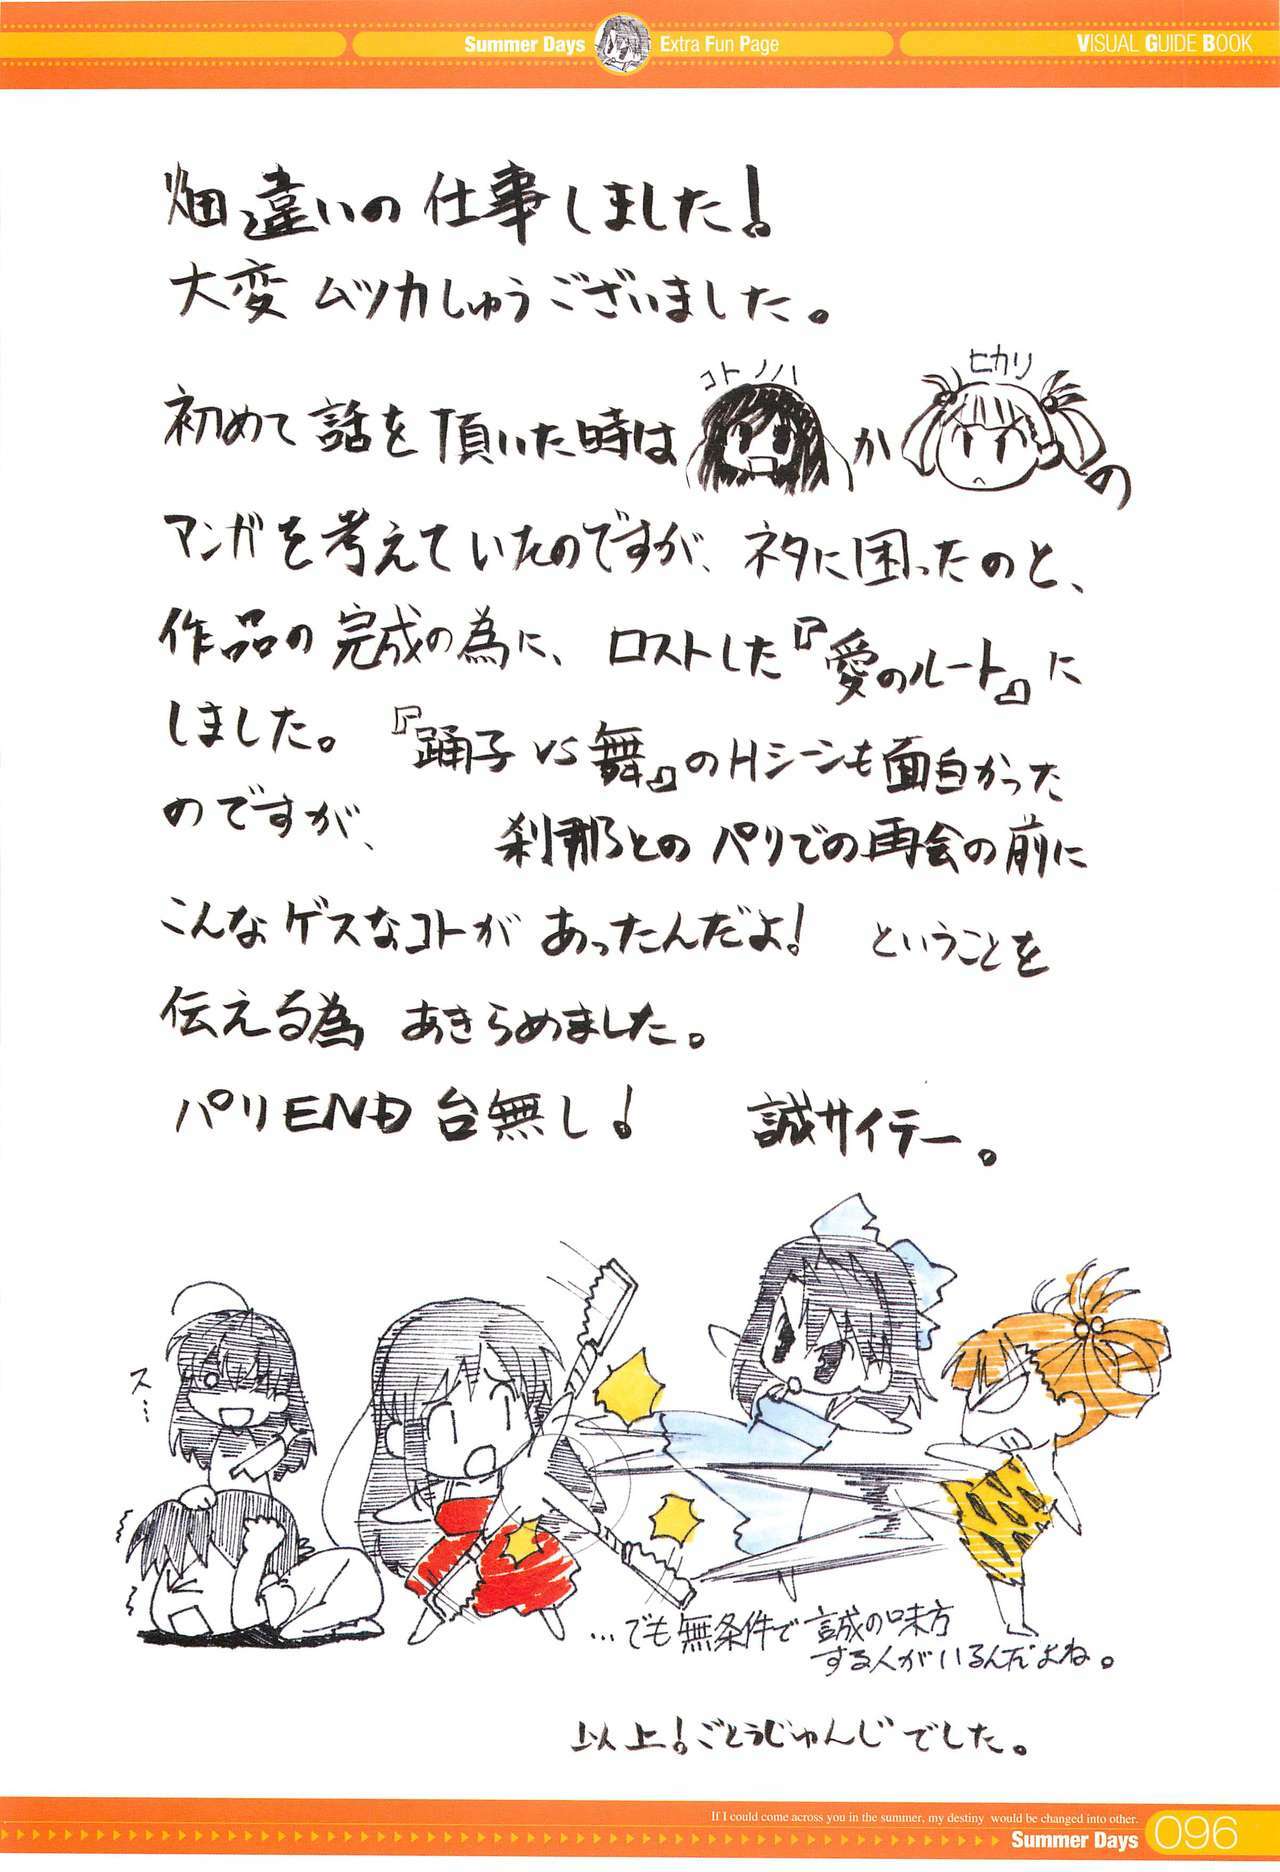 Summer Days Extra Fun Page
VISUAL GUIDE BOOK
畑違いの仕事しました!
大変 ムツカしゅうございました。
コトノハ
ヒカリ
初めて話を頂いた時は か の
マンガを考えていたのですが、ネタに困ったのと、
作品の完成の為に、ロストした『愛のルート』に
しました。『踊子 VS 舞』のHシーンも面白かった
のですが、 刹那とのパリでの再会の前に
こんなゲスなコトがあったんだよ! ということを
伝える為 あきらめました。
パリEND台無し! 誠サイテー。
ス…
…でも無条件で誠の味方
する人がいるんだよね。
以上!ごとうじゅんじでした。
If I could come across you in the summer, my destiny would be changed into other.
Summer Days 096